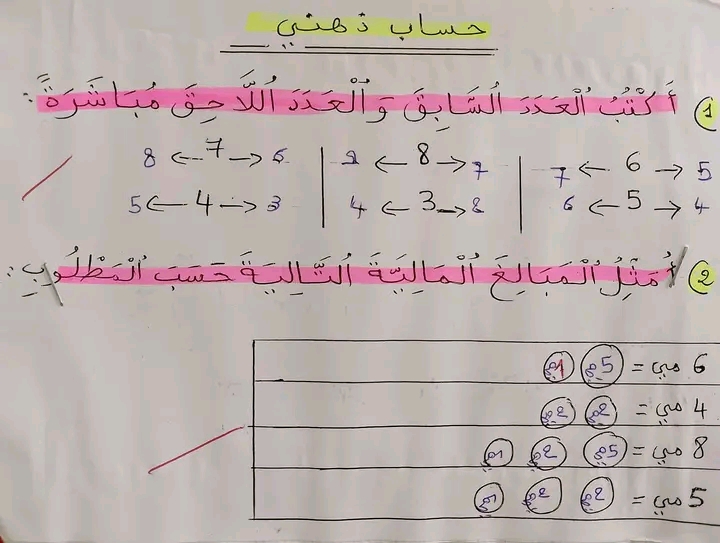 حساب ذهني
1 أَكْتُبُ الْعَدَدَ السَّابِقَ وَالْعَدَدَ اللَّاحِقَ مُبَاشَرَةً :
5 ← 6 → 7 | 7 ← 8 → 9 | 6 ← 7 → 8
4 ← 5 → 6 | 2 ← 3 → 4 | 3 ← 4 → 5
2 أُمَثِّلُ الْمَبَالِغَ الْمَالِيَّةَ التَّالِيَةَ حَسَبَ الْمَطْلُوبِ :
6 مي = 5مي 1مي
4 مي = 2مي 2مي
8 مي = 5مي 2مي 1مي
5 مي = 2مي 2مي 1مي